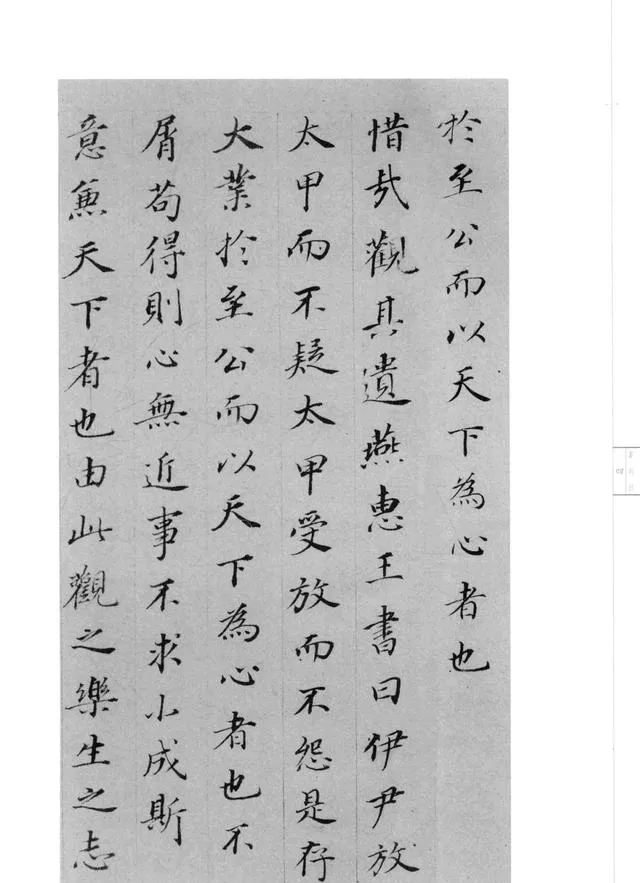 於至公而以天下為心者也
惜哉觀其遺燕惠王書曰伊尹放
太甲而不疑太甲受放而不怨是存
大業於至公而以天下為心者也不
屑苟得則心無近事不求小成斯
意兼天下者也由此觀之樂生之志